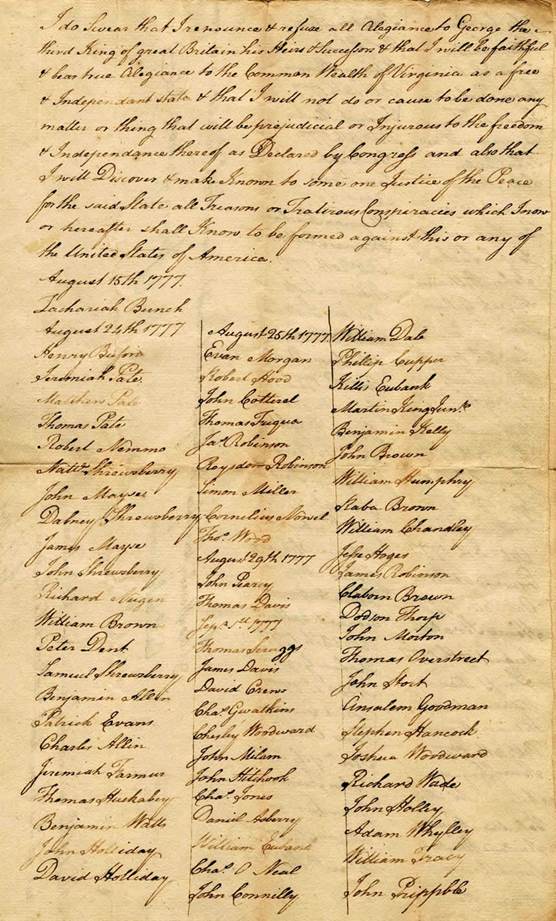 I do Swear that I renounce & refuse all Alegiance to George the
third King of great Britain his Heirs & Successors & that I will be faithful
& bear true Alegiance to the Common Wealth of Virginia as a free
& Independant state & that I will not do or cause to be done any
matter or thing that will be prejudicial or Injurous to the freedom
& Independance thereof as Declared by Congress and also that
I will Discover & make Known to some one Justice of the Peace
for the said State all Treasons or Traterous Conspiracies which I now
or hereafter shall Know to be formed against this or any of
the United States of America.
August 15th 1777
Zachariah Bunch
August 24th 1777
Henry Buford
Jeremiah Pate
Matthew Pate
Thomas Pate
Robert Nemmo
Natt. Shrewsberry
John Mayse
Dabney Shrewsberry
James Mayse
John Shrewsberry
Richard
William Brown
Peter Dent
Samuel Shrewsberry
Benjamin Allin
Patrick Evans
Charles Allin
Jeremiah Farmer
Thomas Huckabey
Benjamin Watts
John Holliday
David Holliday
August 25th 1777
Evan Morgan
Robert Hood
John Cotterel
Thomas Fuqua
Jas. Robinson
Roysdon Robinson
Simon Miller
Cornelius
Thos. Wood
August 29th 1777
John Pearcy
Thomas Davis
Sepr. 1st 1777
Thomas Scruggs
James Davis
David Crews
Chas. Gwatkins
Chesley Woodward
John Milam
John Hitchook
Chas. Jones
Daniel Asberry
William Eubank
Chas. O Neal
John Connilly
William Dale
Phillip Cupper
Kitts Eubank
Martin King Junr.
Benjamin Kelly
John Brown
William Humphry
Staba Brown
William Chandley
Jesse Hoges
James Robinson
Claborn Brown
Dodson Thorp
John Morton
Thomas Overstreet
John Hort
Ansalem Goodman
Stephen Hancock
Joshua Woodward
Richard Wade
John Holley
Adam Whylley
William Tracy
John